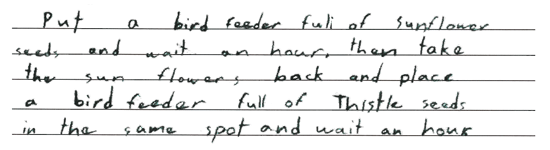 Put a bird feeder full of sunflower
seeds and wait an hour, then take
the sun flowers back and place
a bird feeder full of Thistle seeds
in the same spot and wait an hour